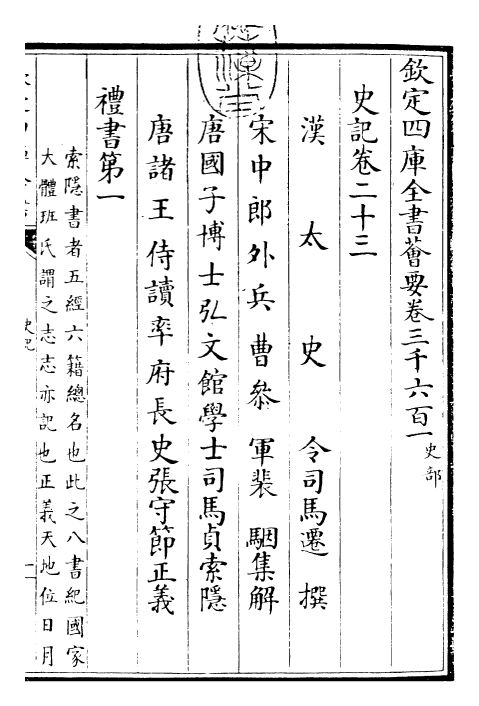 欽定四庫全書薈要卷三千六百一史部
史記卷二十三
漢太史令司馬遷撰
宋中郎外兵曹參軍裴駰集解
唐國子博士弘文館學士司馬貞索隱
唐諸王侍讀率府長史張守節正義
禮書第一
索隱書者五經六籍總名也此之八書紀國家
大體班氏謂之志志亦記也正義天地位日月
史記